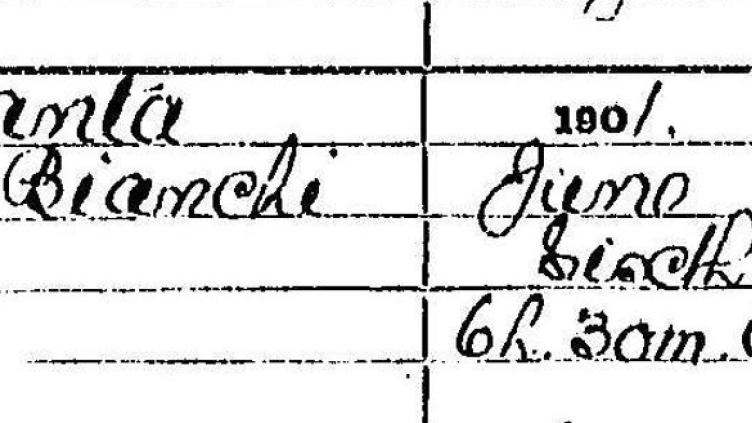 Bianchi
1901.
June
Sixth
6h. 30m.